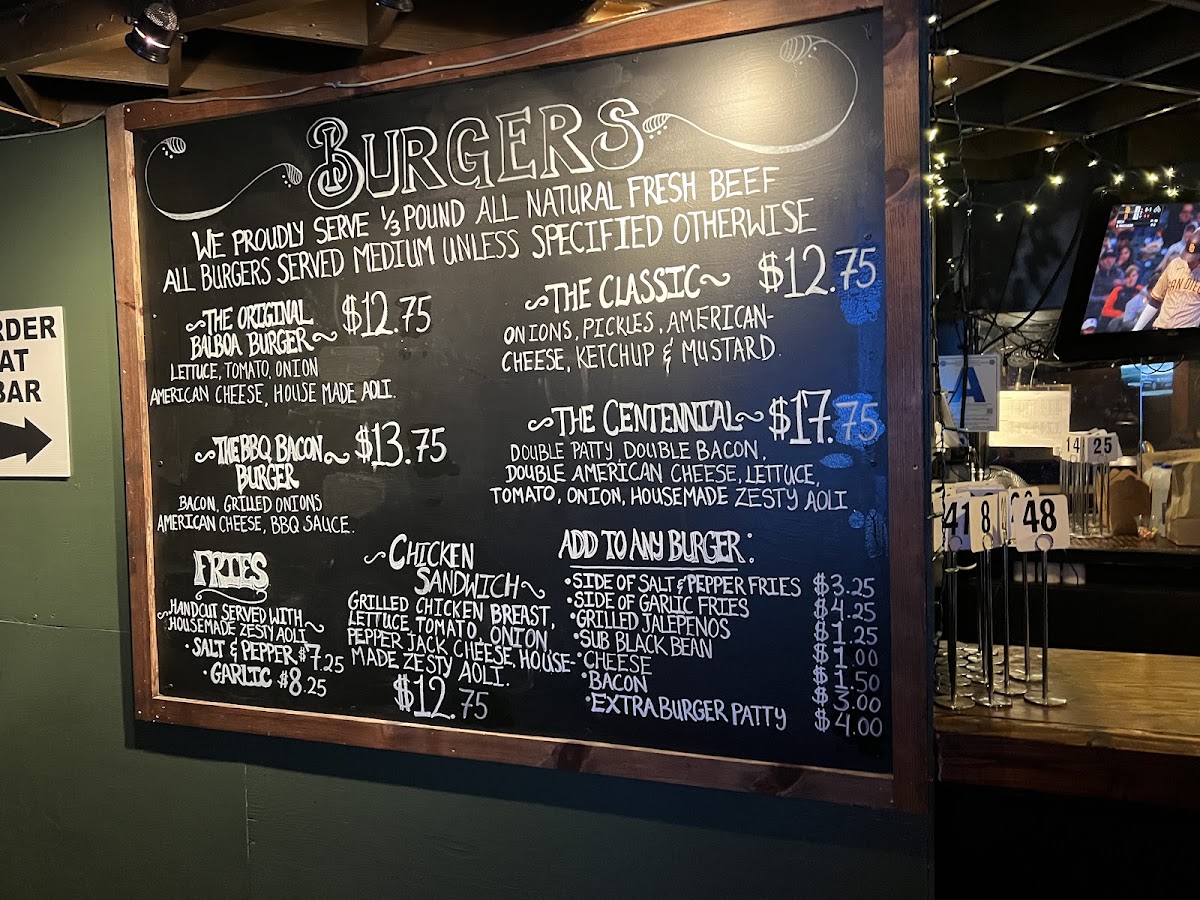 BURGERS
WE PROUDLY SERVE 1/3 POUND ALL NATURAL FRESH BEEF
ALL BURGERS SERVED MEDIUM UNLESS SPECIFIED OTHERWISE
~THE ORIGINAL
BALBOA BURGER~ $12.75
LETTUCE, TOMATO, ONION
AMERICAN CHEESE, HOUSE MADE AOLI.
~THE CLASSIC~ $12.75
ONIONS, PICKLES, AMERICAN-
CHEESE, KETCHUP & MUSTARD.
~THE BBQ BACON~ $13.75
BURGER
BACON, GRILLED ONIONS
AMERICAN CHEESE, BBQ SAUCE.
~THE CENTENNIAL~ $17.75
DOUBLE PATTY, DOUBLE BACON,
DOUBLE AMERICAN CHEESE, LETTUCE,
TOMATO, ONION, HOUSEMADE ZESTY AOLI
FRIES
~HANDCUT SERVED WITH
HOUSEMADE ZESTY AOLI~
•SALT & PEPPER $7.25
•GARLIC $8.25
~CHICKEN
SANDWICH~
GRILLED CHICKEN BREAST,
LETTUCE, TOMATO, ONION,
PEPPER JACK CHEESE, HOUSE-
MADE ZESTY AOLI.
$12.75
ADD TO ANY BURGER:
•SIDE OF SALT & PEPPER FRIES $3.25
•SIDE OF GARLIC FRIES $4.25
•GRILLED JALEPENOS $1.25
•SUB BLACK BEAN $1.00
•CHEESE $1.50
•BACON $3.00
•EXTRA BURGER PATTY $4.00
RDER
AT
BAR
A
14
25
41
8
48